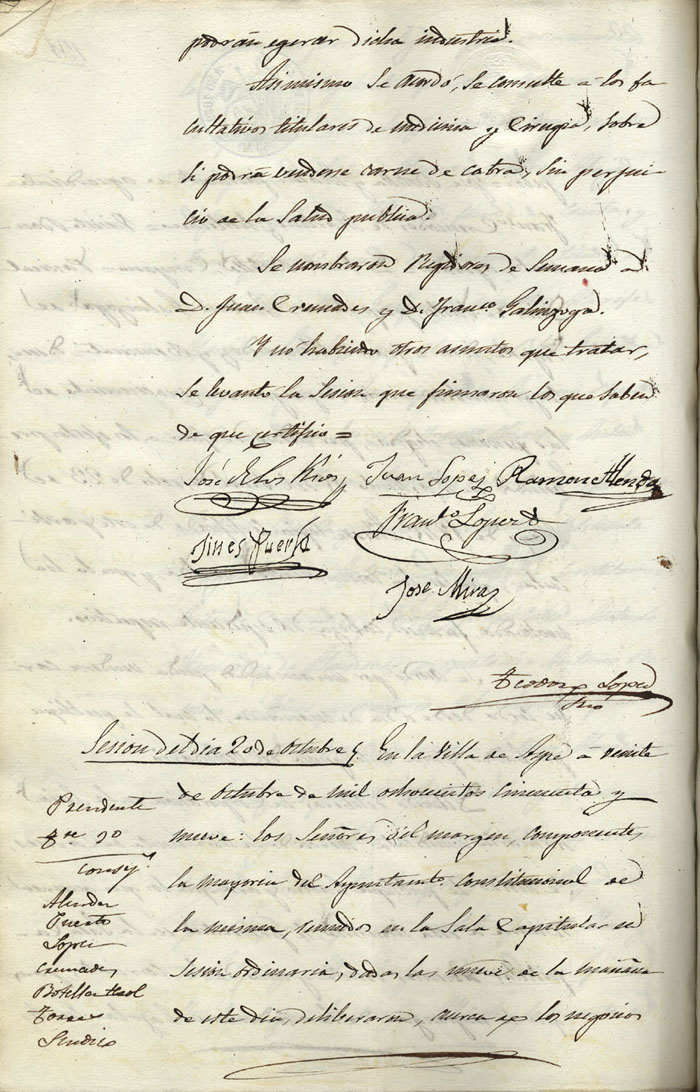 podrán egercer dicha industria.
Asimismo se acordó, se consulte á los fa
cultativos titulares de medicina y Cirugia, sobre
si podrá venderse carne de cabra, sin perjui-
cio de la Salud publica.
Se nombraron Regidores de Semana á
D. Juan Cremades y D. Franco. Galinzoga.
Y no habiendo otros asuntos que tratar,
se levanto la Sesion que firmaron los que saben
de que certifico =
José de los Rios Juan Lopez Ramon Alenda
Franco. Lopez
Jines Puerto
Jose Mira
Teodoro Lopez
Srio
Sesion del dia 20 de Octubre En la Villa de Aspe á veinte
de Octubre de mil ochocientos cincuenta y
nueve: los Señores del margen, componentes
la mayoria del Ayuntamto. Constitucional de
la misma, reunidos en la Sala Capitular en
Sesion ordinaria, dadas las nueve de la mañana
de este dia, deliberaron, acerca de los negocios
Presidente
Alenda
Puerto
Lopez
Cremades
Botella
Sindico